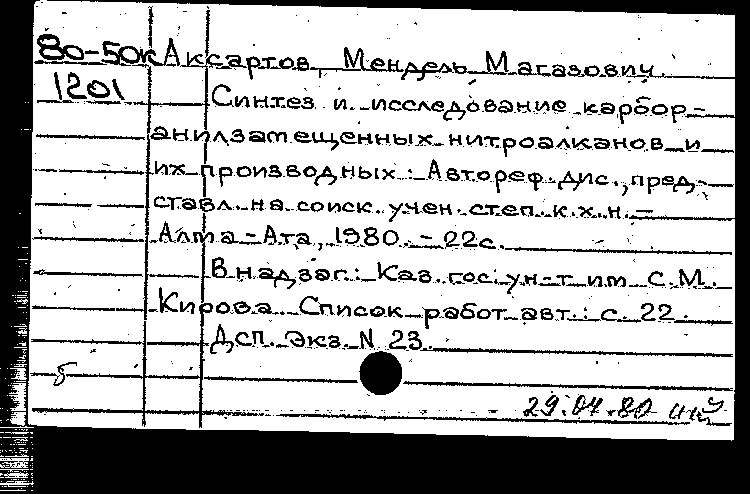 80-50к Аксартов, Мендель Магазович.
1201 Синтез и исследование карбор-
анилзамещенных нитроалканов и
их производных: Автореф. дис., пред-
ставл. на соиск. учен. степ. к.х.н. –
Алма-Ата, 1980. – 22с.
В надзаг.: Каз. гос. ун-т им С.М.
Кирова. Список работ авт.: с. 22.
Дсп. Экз. N 23.
б
29.04.80